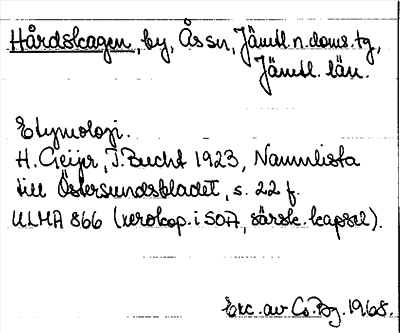 Hårdskagen, by, Ås sn, Jämtl. n. doms. tg,
Jämtl. län.
Etymologi.
H. Geijer, J. Brecht 1923, Namnlista
till Östersundsbladet, s. 22 f.
ULMA 866 (xerokop. i SOA, särsk. kapsel).
Exc. av Cs. Bg. 1968.